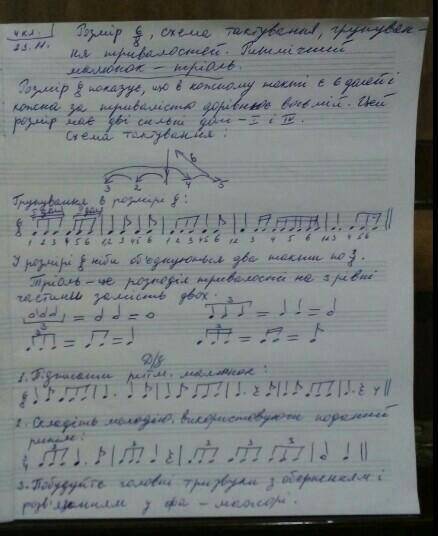 4 кл.
23.11.
Розмір 6/8, схема тактування, групуван-
ня тривалостей. Ритмічний
малюнок – тріоль.
Розмір 6/8 показує, що в кожному такті є 6 долей і
кожна за тривалістю дорівнює восьмій. Цей
розмір має дві сильні долі – I і IV.
Схема тактування:
6
3 2 1 4 5
Групування в розмірі 6/8:
6/8
1 2 3 4 5 6 12 3 45 6 1 2 3 4 5 6 12 3 4 5 6 12 3 4 5 6
У розмірі 6/8 ніби об'єднуються два такти по 3/8.
Тріоль – це розподіл тривалості на 3 рівні
частини замість двох.
3 = = 3 = =
3 = = 3 = =
Д/з
1. Підписати ритм. малюнок:
6/8
2. Складіть мелодію, використовуючи поданий
ритм:
3 3 3 3
3. Побудуйте головні тризвуки з оберненням і
розв'язанням у фа – мажорі.